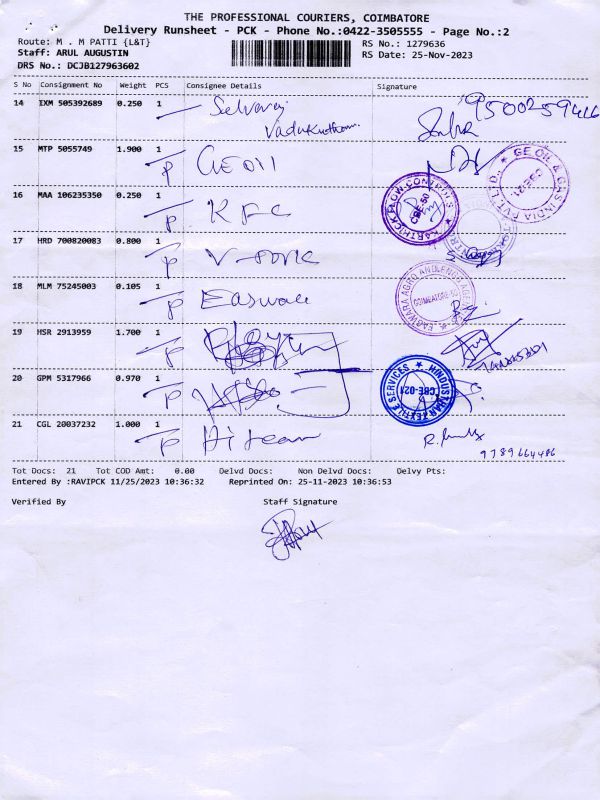 THE PROFESSIONAL COURIERS, COIMBATORE
Delivery Runsheet - PCK - Phone No.:0422-3505555 - Page No.:2
Route: M . M PATTI {L&T}
RS No.: 1279636
Staff: ARUL AUGUSTIN
RS Date: 25-Nov-2023
DRS No.: DCJB127963602
S No Consignment No Weight PCS Consignee Details Signature
14 IXM 505392689 0.250 1 Selvaraj
9500259416
15 MTP 5055749 1.900 1 GEOil
GE OIL & GAS INDIA PVT. LTD.,
16 MAA 106235350 0.250 1 KFC
KARTHICK FLOW CONTROLS
CBE-50
17 HRD 700820083 0.800 1
18 MLM 75245003 0.105 1
COIMBATORE-50
19 HSR 2913959 1.700 1
20 GPM 5317966 0.970 1
HINDUSTHAN TEXTILE SERVICES
CBE-021
21 CGL 20037232 1.000 1 Hi team
9789664486
Tot Docs: 21 Tot COD Amt: 0.00 Delvd Docs: Non Delvd Docs: Delvy Pts:
Entered By :RAVIPCK 11/25/2023 10:36:32 Reprinted On: 25-11-2023 10:36:53
Verified By Staff Signature